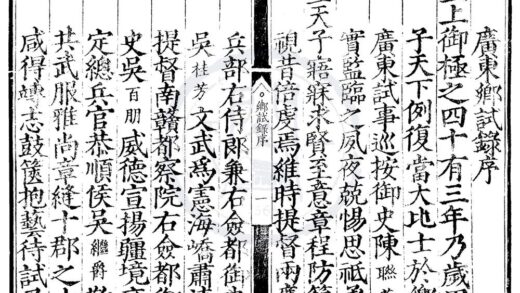 廣東鄉試錄序
上御極之四十有三年乃歲
子天下例復當大比士於
廣東試事巡按御史陳聯
實監臨之夙夜兢惕思祗
天子寤寐求賢至意章程防
視昔倍虔焉維時提督兩
鄉試錄序
一
兵部右侍郎兼右僉都御
吳桂芳文武為憲海嶠肅
提督南贛都察院右僉都御
史吳百朋威德宣揚疆境
定總兵官恭順侯吳繼爵
共武服雅尚章縫十郡之
咸得專志鼓篋抱藝待試